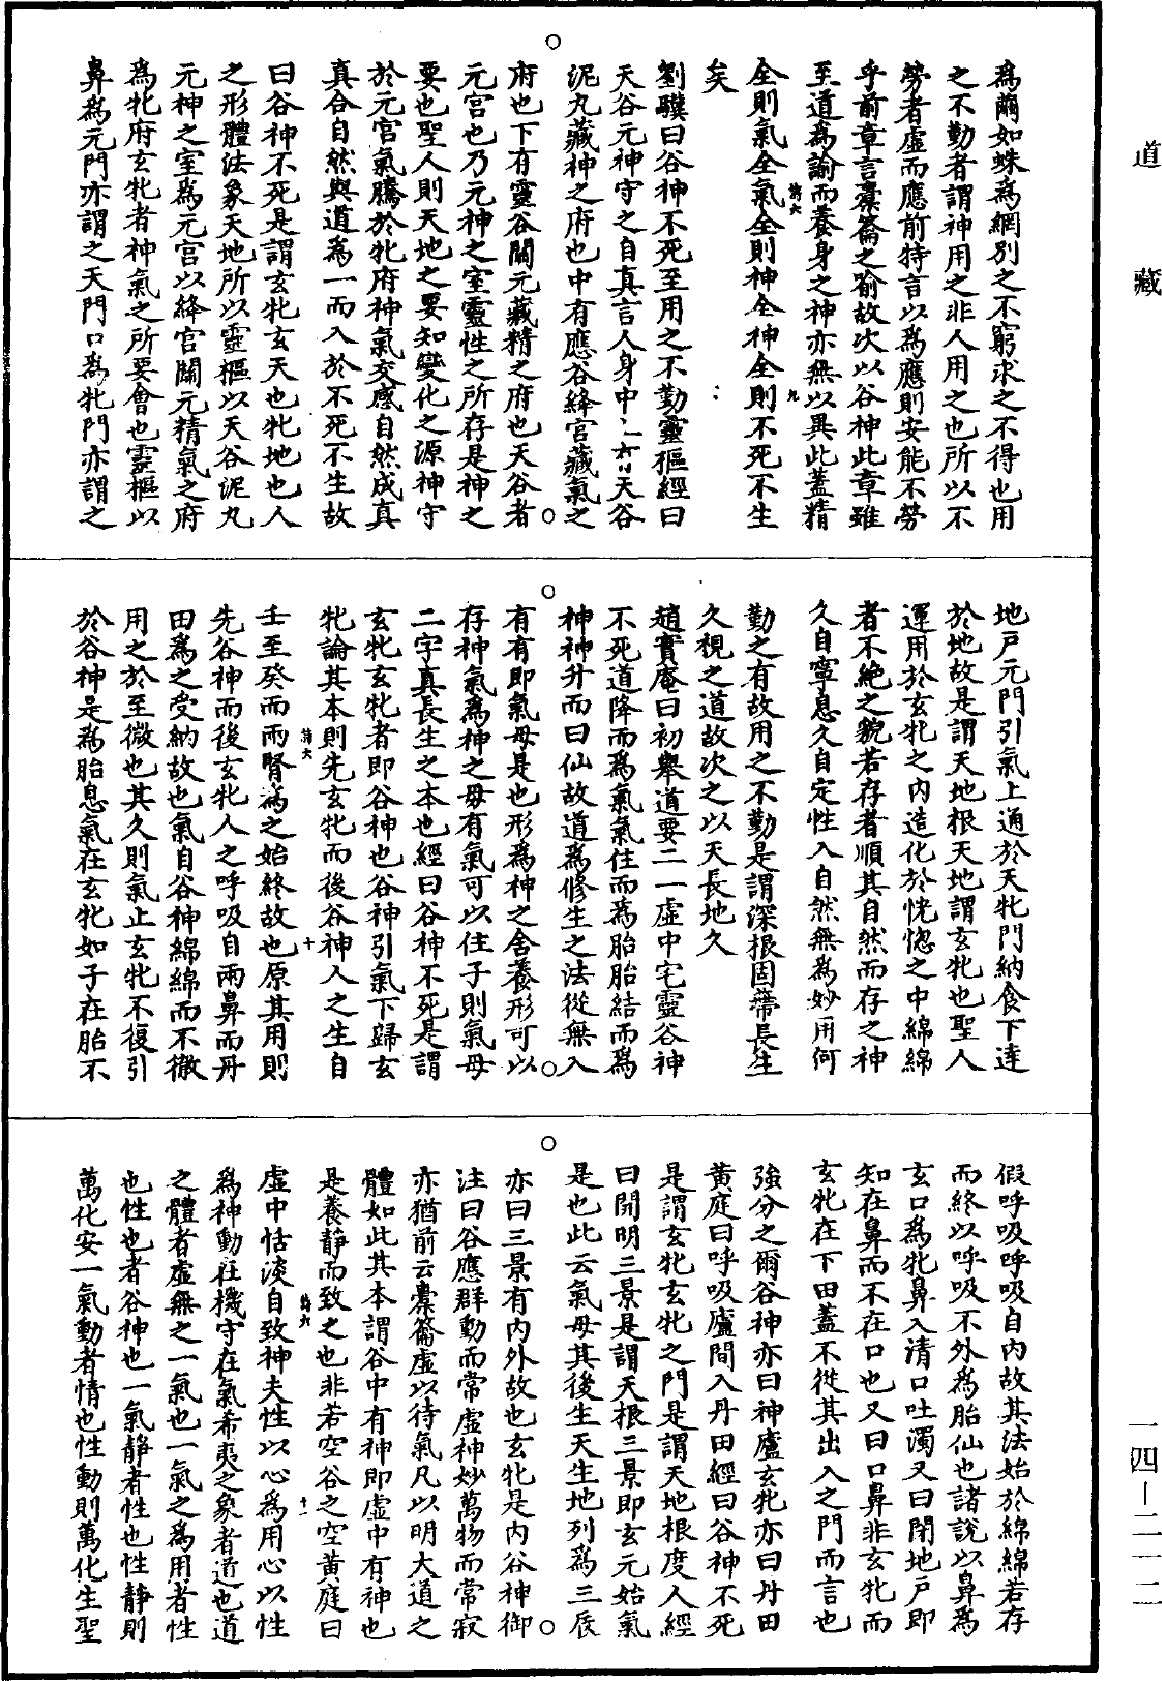 道藏
為罔如蛛為網別之不窮求之不得也用
之不勤者謂神用之非人用之也所以不
勞者虛而應前特言以為應則安能不勞
乎前章言橐籥之喻故次以谷神此章雖
至道為諭而養身之神亦無以異此蓋精
全則氣全氣全則神全神全則不死不生
矣
劉驥曰谷神不死至用之不勤靈樞經曰
天谷元神守之自真言人身中上有天谷
泥丸藏神之府也中有應谷絳宮藏氣之
府也下有靈谷關元藏精之府也天谷者
元宮也乃元神之室靈性之所存是神之
要也聖人則天地之要知變化之源神守
於元宮氣騰於牝府神氣交感自然成真
真合自然與道為一而入於不死不生故
曰谷神不死是謂玄牝玄天也牝地也人
之形體法象天地所以靈樞以天谷泥丸
元神之室為元宮以絳宮關元精氣之府
為牝府玄牝者神氣之所要會也靈樞以
鼻為元門亦謂之天門口為牝門亦謂之
地戶元門引氣上通於天牝門納食下達
於地故是謂天地根天地謂玄牝也聖人
運用於玄牝之內造化於恍惚之中綿綿
者不絕之貌若存者順其自然而存之神
久自寧息久自定性入自然無為妙用何
勤之有故用之不勤是謂深根固蔕長生
久視之道故次之以天長地久
趙實庵曰初舉道要二一虛中宅靈谷神
不死道降而為氣氣住而為胎胎結而為
神神升而曰仙故道為修生之法從無入
有有即氣母是也形為神之舍養形可以
存神氣為神之母有氣可以住子則氣母
二字真長生之本也經曰谷神不死是謂
玄牝玄牝者即谷神也谷神引氣下歸玄
牝論其本則先玄牝而後谷神人之生自
壬至癸而兩腎為之始終故也原其用則
先谷神而後玄牝人之呼吸自兩鼻而丹
田為之受納故也氣自谷神綿綿而不徹
用之於至微也其久則氣止玄牝不復引
於谷神是為胎息氣在玄牝如子在胎不
假呼吸呼吸自內故其法始於綿綿若存
而終以呼吸不外為胎仙也諸說以鼻為
玄口為牝鼻入清口吐濁又曰閉地戶即
知在鼻而不在口也又曰口鼻非玄牝而
玄牝在下田蓋不從其出入之門而言也
強分之爾谷神亦曰神廬玄牝亦曰丹田
黃庭曰呼吸廬間入丹田經曰谷神不死
是謂玄牝玄牝之門是謂天地根度人經
曰開明三景是謂天根三景即玄元始氣
是也此云氣母其後生天生地列為三辰
亦曰三景有內外故也玄牝是內谷神御
注曰谷應群動而常虛神妙萬物而常寂
亦猶前云橐籥虛以待氣凡以明大道之
體如此其本謂谷中有神即虛中有神也
是養靜而致之也非若空谷之空黃庭曰
虛中恬淡自致神夫性以心為用心以性
為神動在機守在氣希夷之象者道也道
之體者虛無之一氣也一氣之為用者性
也性也者谷神也一氣靜者性也性靜則
萬化安一氣動者情也性動則萬化生聖
一四—二一二